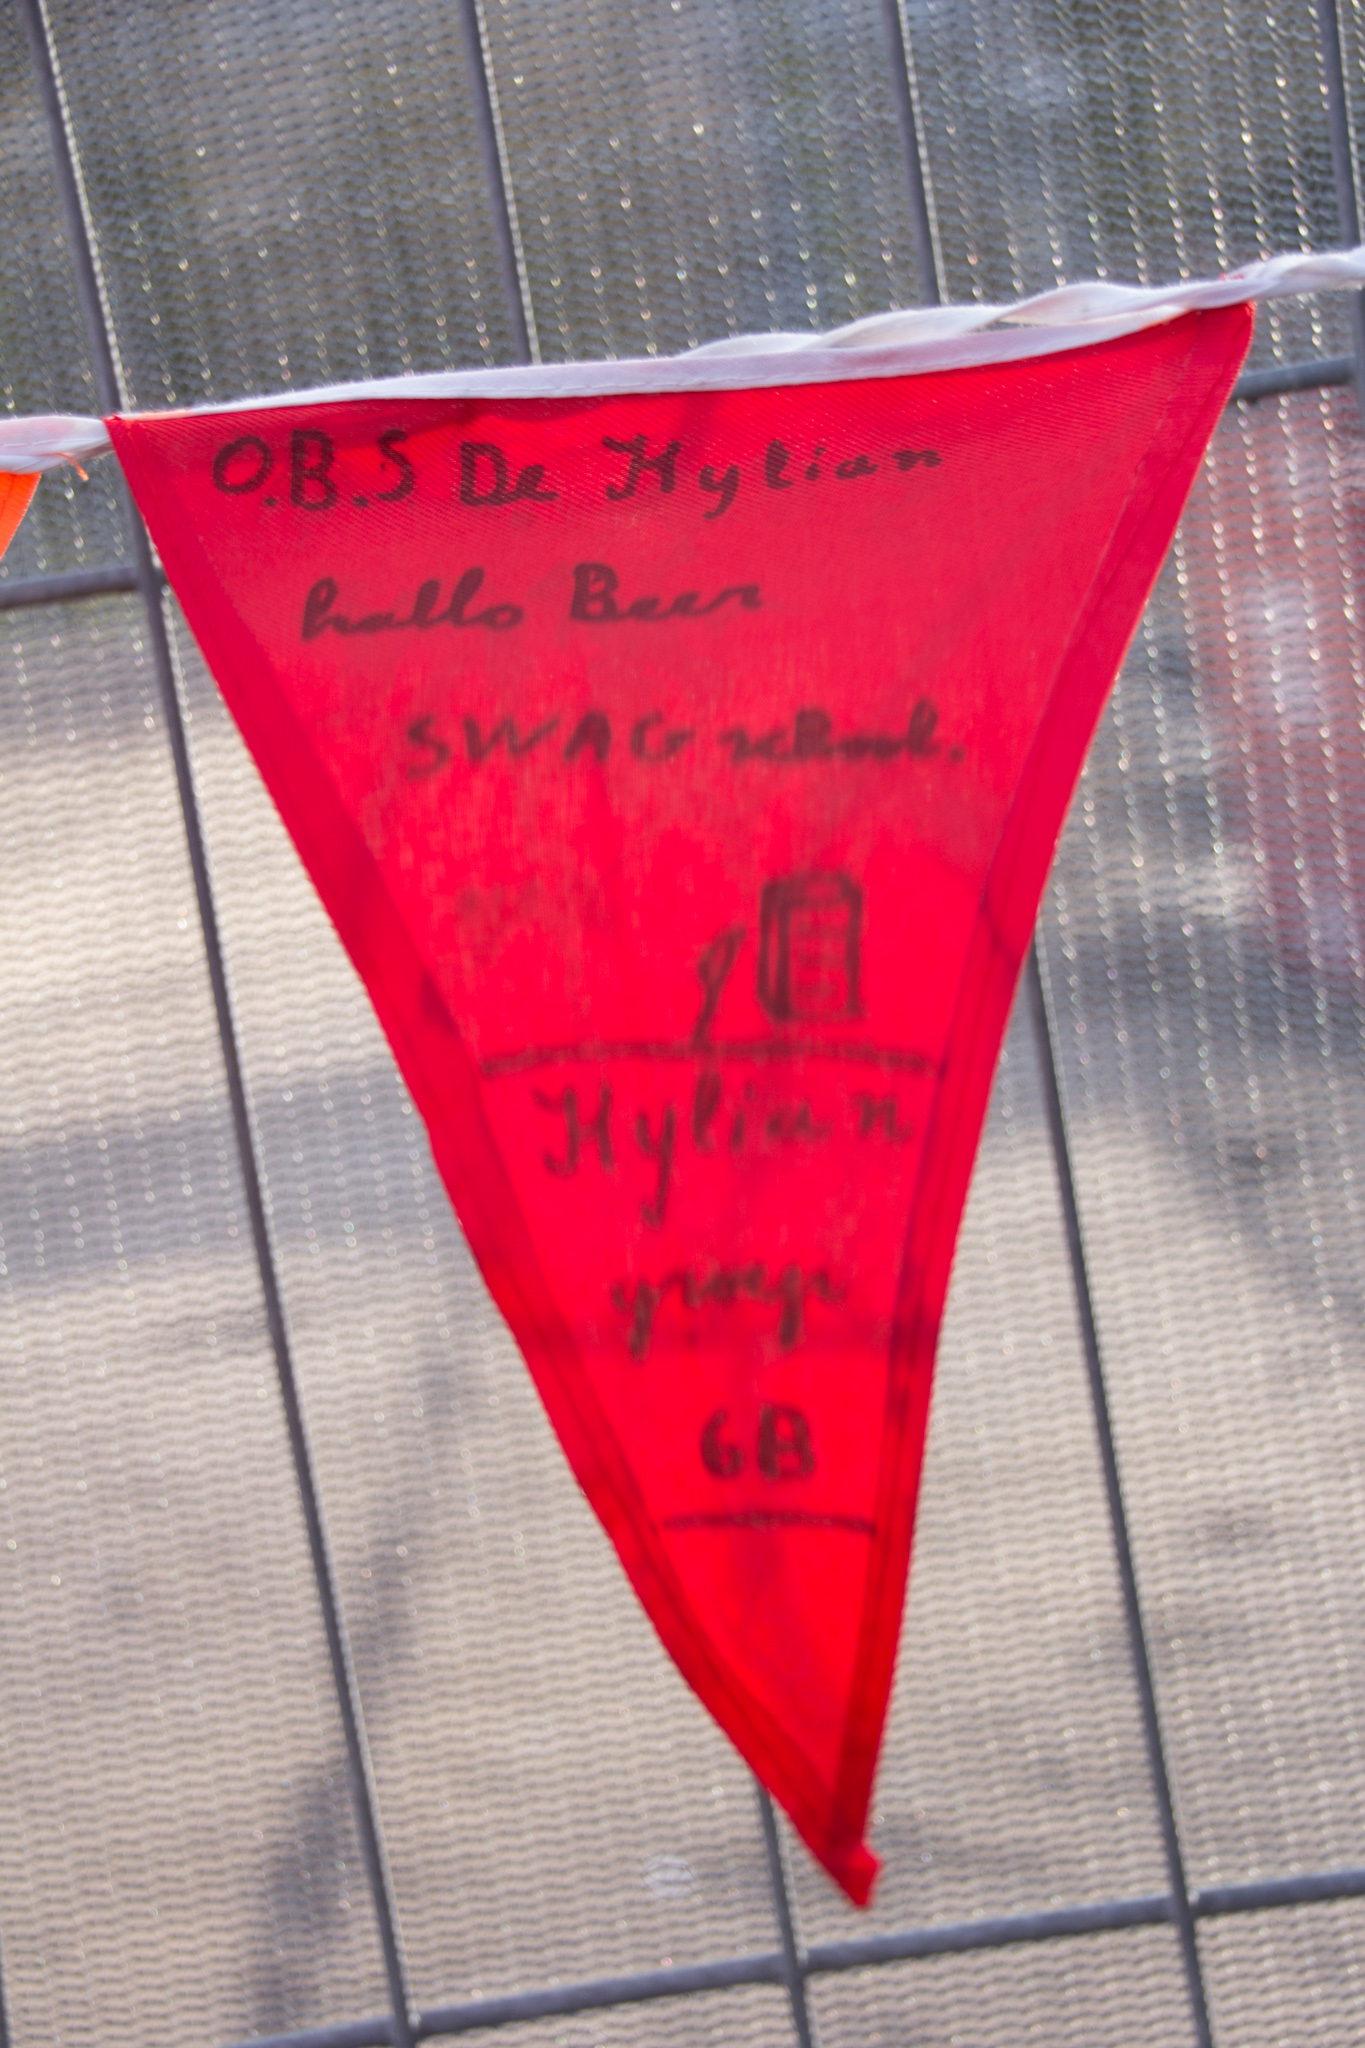 O.B.S De Kylian
hallo Beer
SWAG school.
Kylian
groep
6B